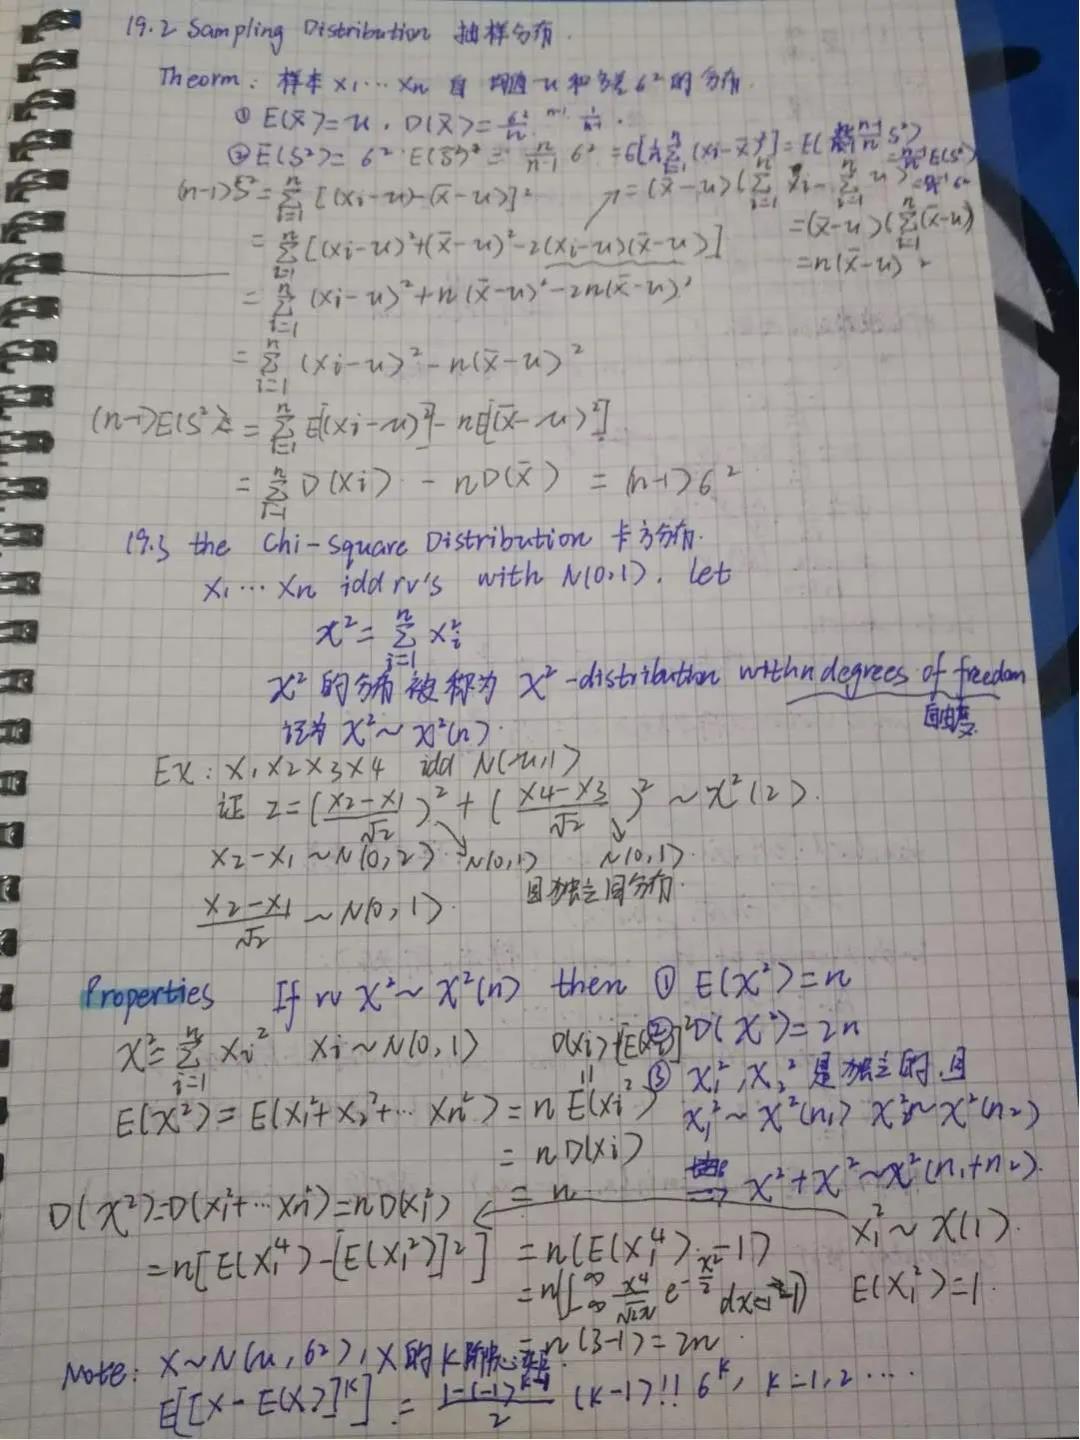 19.2 Sampling Distribution 抽样分布.
Theorm: 样本 x₁…xₙ 自 均值 u 和方差 6² 的分布.
① E(x̄)=u. D(x̄)=6²/n
② E(S²)=6² E(S̃²)= n/n-1 6² =6[1/n Σᵢ₌₁ⁿ(xi-x̄)²]=E(n-1/n S²)
= n-1/n E(S²)
(n-1)S² = Σᵢ₌₁ⁿ[(xi-u)-(x̄-u)]²
=(x̄-u)(Σᵢ₌₁ⁿ xi-Σᵢ₌₁ⁿ u)
= Σᵢ₌₁ⁿ[(xi-u)²+(x̄-u)²-2(xi-u)(x̄-u)]
=(x̄-u)(Σᵢ₌₁ⁿ(x̄-u)
=n(x̄-u)²
= Σᵢ₌₁ⁿ (xi-u)²+n(x̄-u)²-2n(x̄-u)²
= Σᵢ₌₁ⁿ (xi-u)²-n(x̄-u)²
(n-1)E(S²) = Σᵢ₌₁ⁿ E[(xi-u)²]-nE[(x̄-u)²]
= Σᵢ₌₁ⁿ D(xi) - nD(x̄) = (n-1)6²
19.3 the Chi-square Distribution 卡方分布.
x₁…xn idd rv's with N(0,1). Let
x² = Σᵢ₌₁ⁿ xi²
x² 的分布被称为 x²-distribution with n degrees of freedom
自由度
记为 x²~x²(n).
Ex: x₁x₂x₃x₄ idd N(u,1)
证 Z=(x₂-x₁/√2)²+(x₄-x₃/√2)²~x²(2).
x₂-x₁~N(0,2) ~N(0,1) N(0,1).
且独立同分布.
x₂-x₁/√2 ~N(0,1).
Properties If rv x²~x²(n) then ① E(x²)=n
x²=Σᵢ₌₁ⁿ xi² xi~N(0,1) D(xi)+[E(xi)]² ② D(x²)=2n
③ x₁²,x₂² 是独立的,且
E(x²)=E(x₁²+x₂²+…xn²)=nE(xi²) x₁²~x²(n₁) x₂²~x²(n₂)
=nD(xi)
=n ⟹ x²+x²~x²(n₁+n₂).
D(x²)=D(x₁²+…xn²)=nD(xi²)
x₁²~x(1).
=n[E(x₁⁴)-[E(x₁²)]²] =n(E(x₁⁴)-1)
=n(∫₋∞^∞ x⁴/√2π e^(-x²/2) dx-1) E(x₁²)=1.
=n(3-1)=2n.
Note: X~N(u,6²), X的K阶中心矩.
E[[X-E(X)]ᴷ] = 1-(-1)ᴷ⁻¹/2 (K-1)!! 6ᴷ, K=1,2….